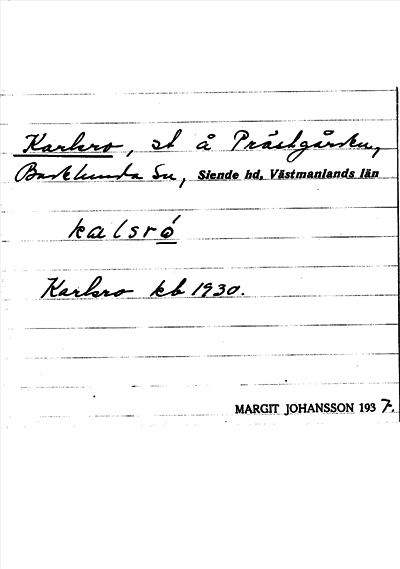 Karlsro, st å Prästgården,
Barkhunda sn, Siende hd, Västmanlands län
kalsró
Karlsro kb 1930.
MARGIT JOHANSSON 1937.